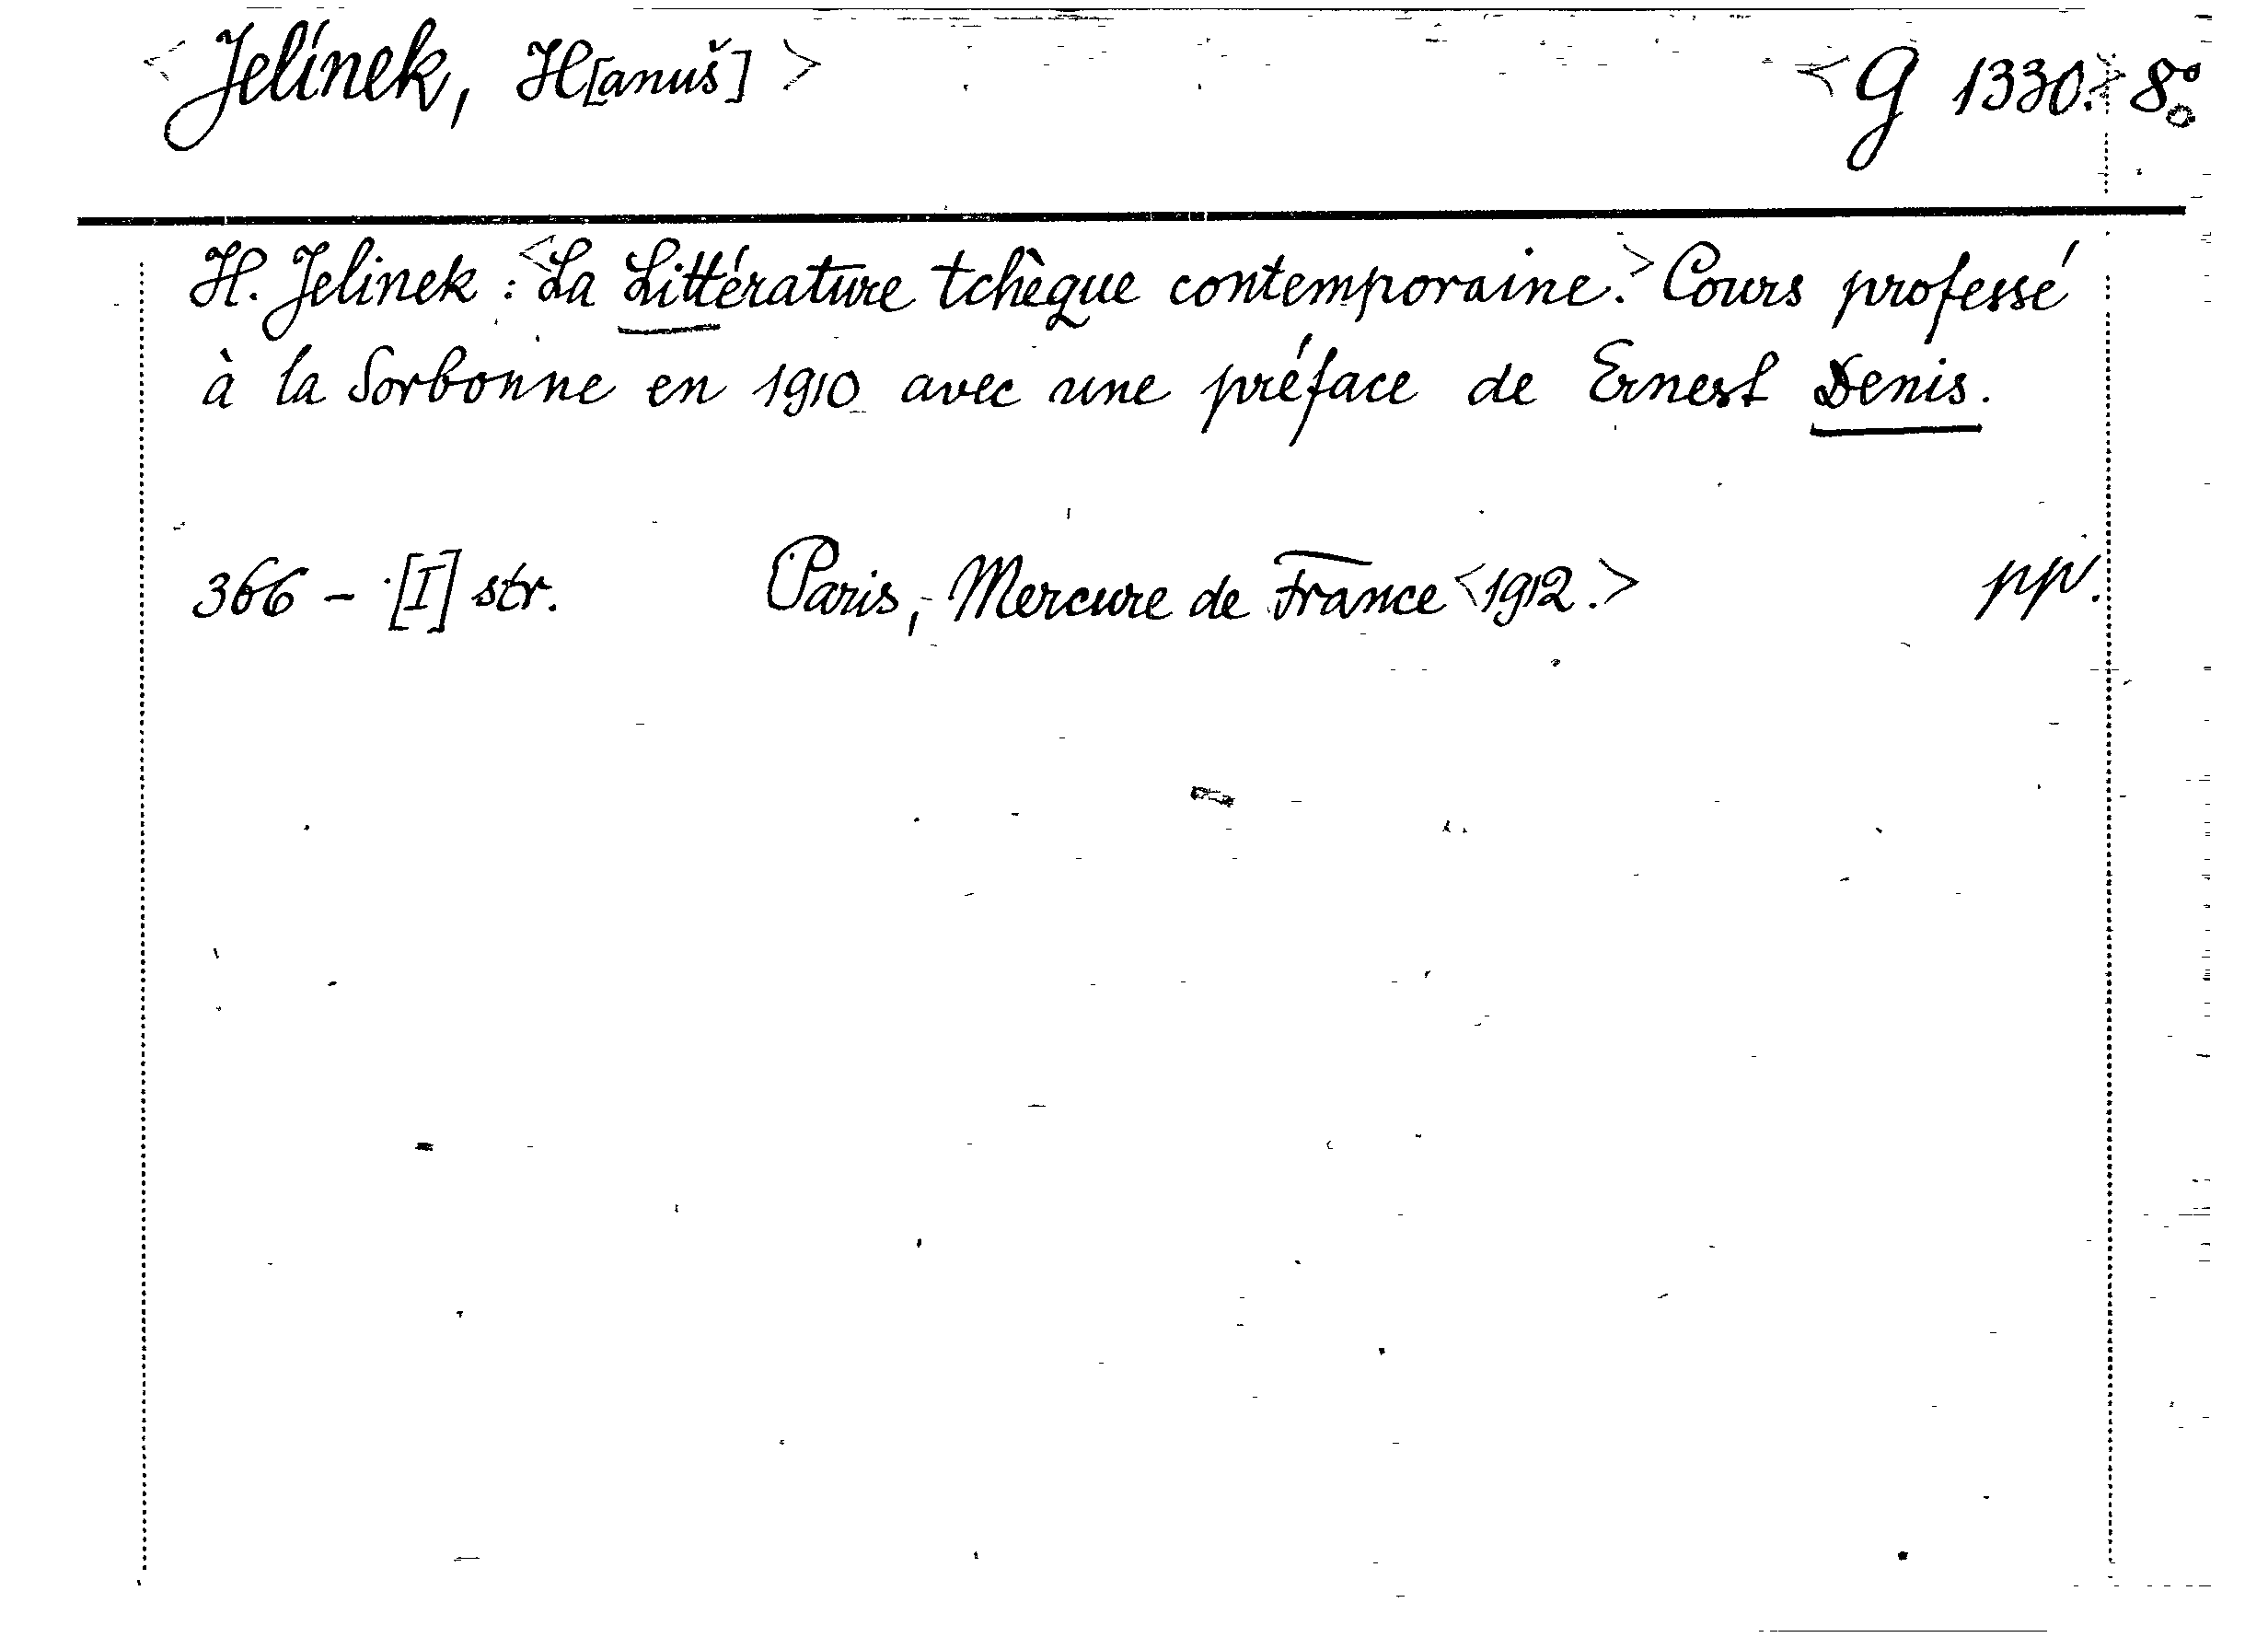 <Jelínek, H[anuš]> <G 1330.> 8°
H. Jelinek: <La Littérature tchèque contemporaine.> Cours professé
à la Sorbonne en 1910 avec une préface de Ernest Denis.
366 - [I] str. Paris, Mercure de France <1912.> pp.